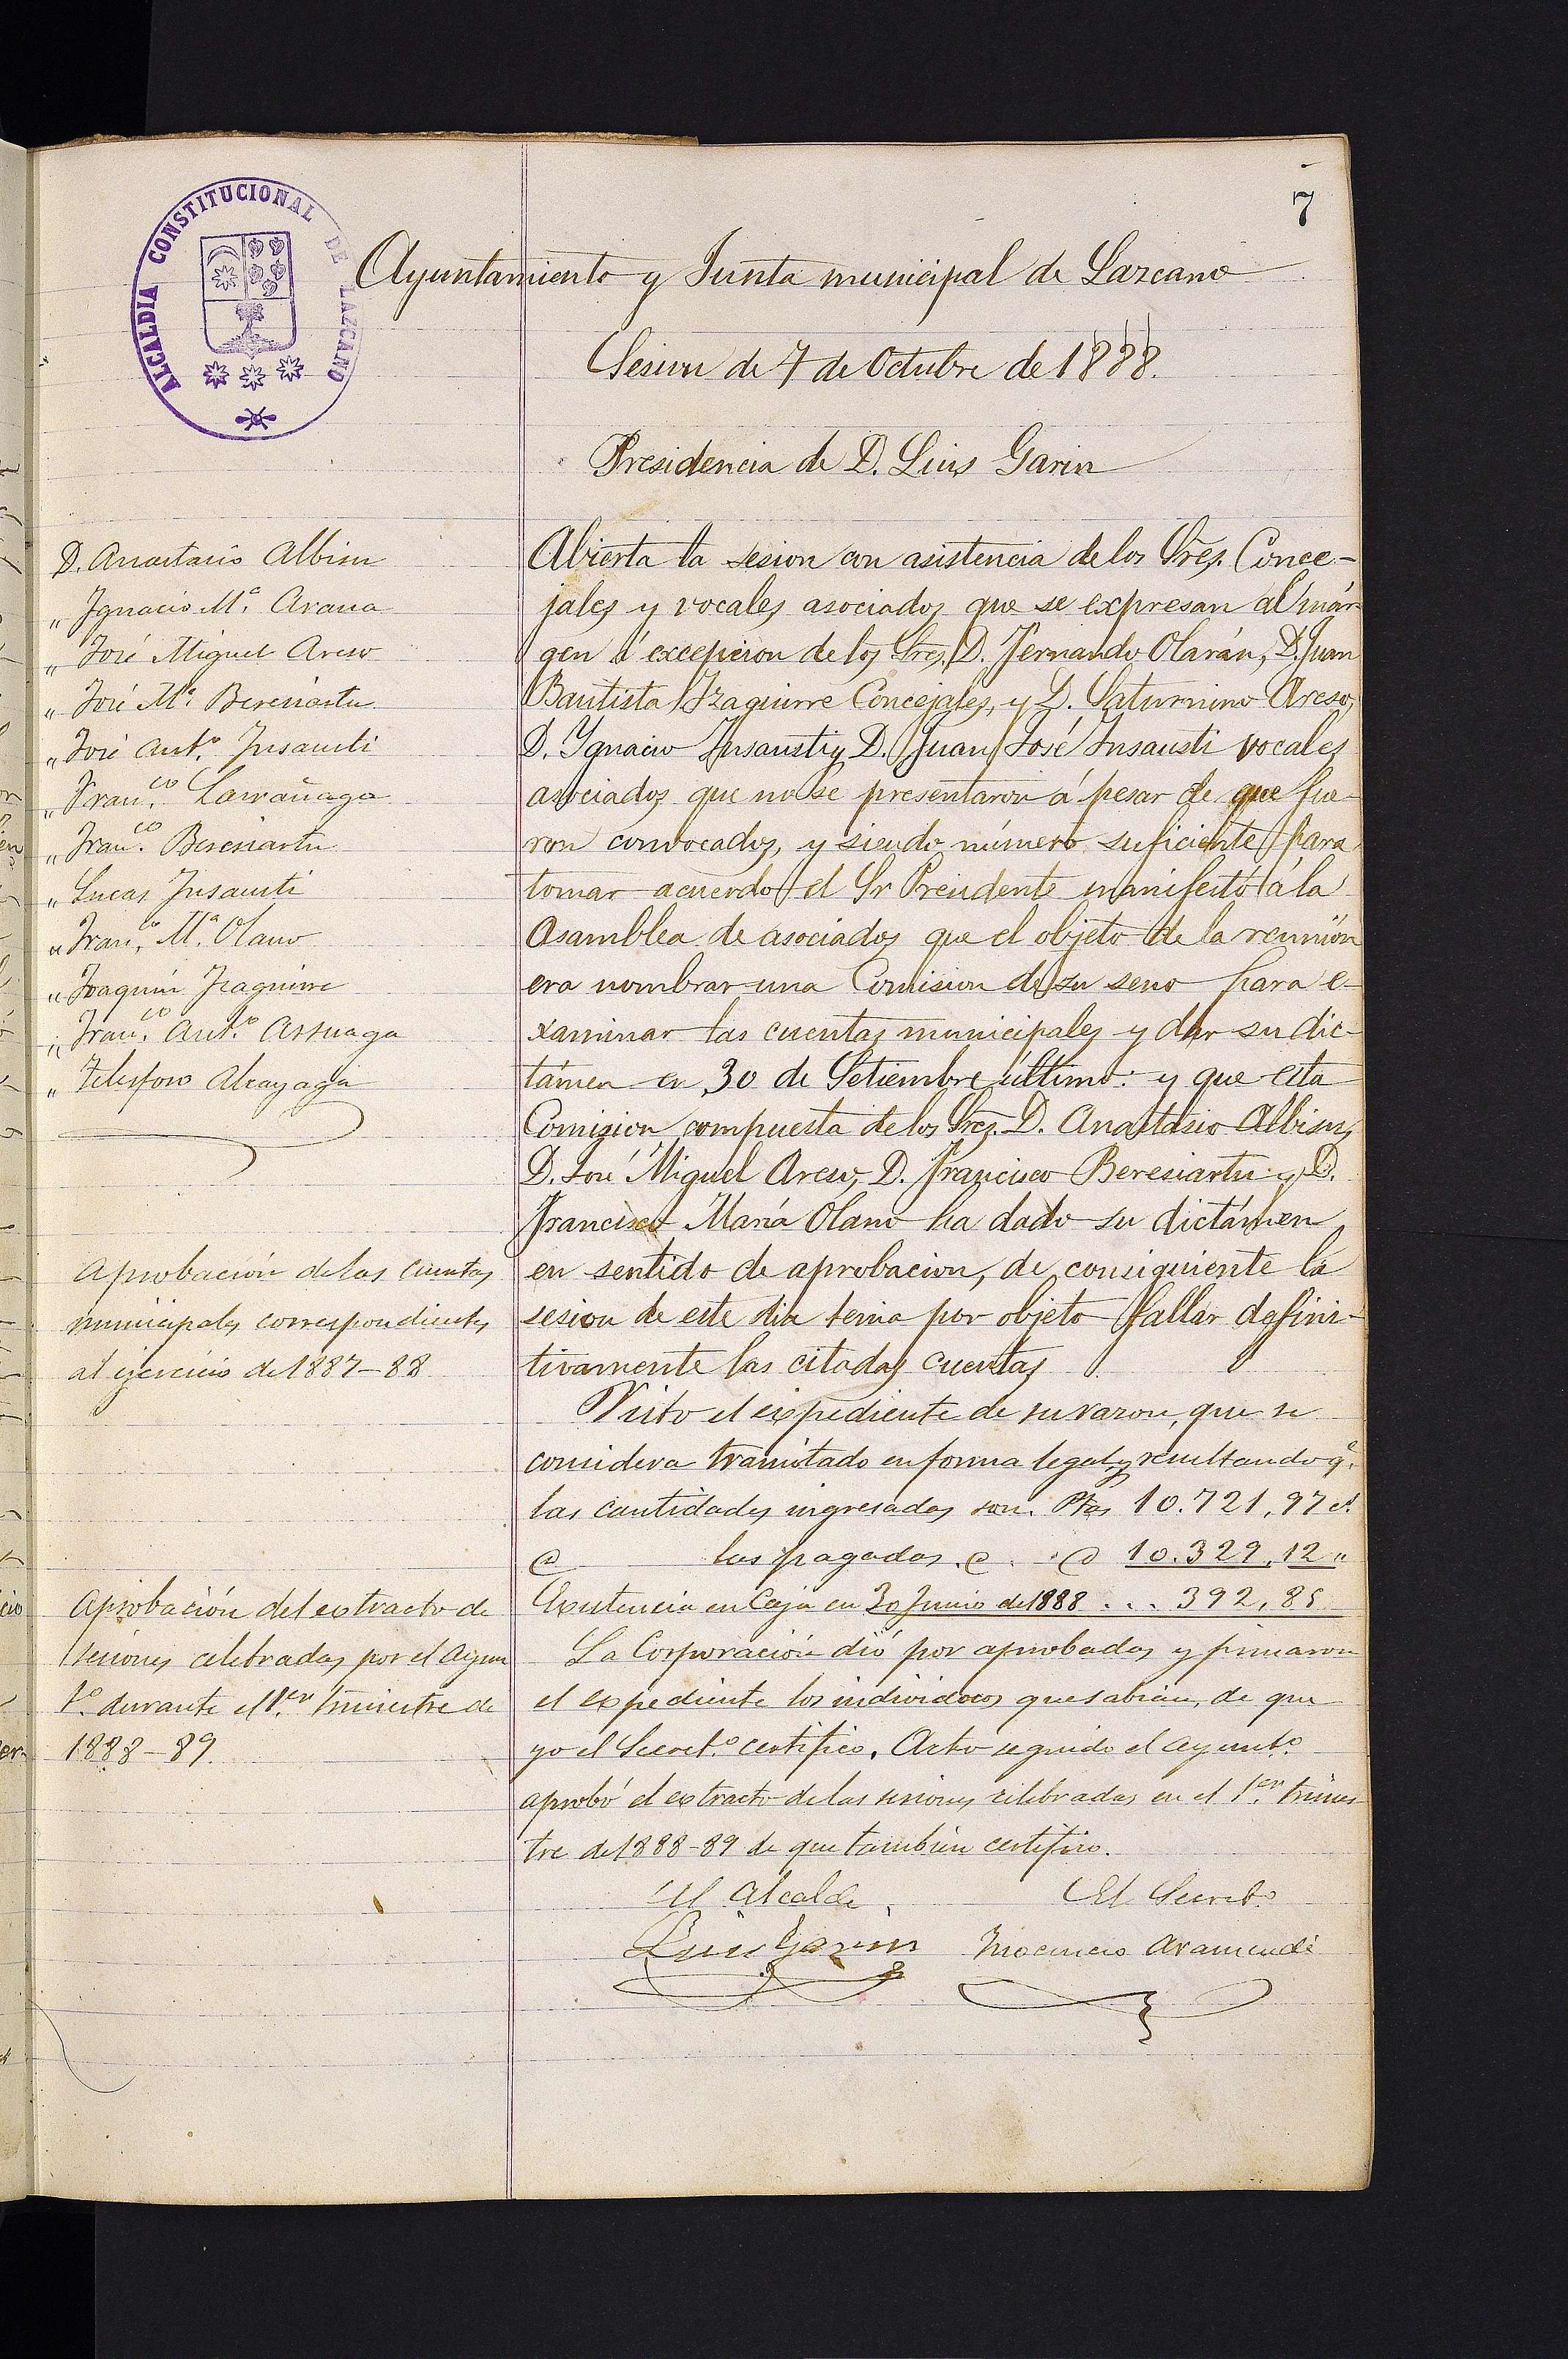 7
ALCALDIA CONSTITUCIONAL DE LAZCANO
Ayuntamiento y Junta municipal de Lazcano
Sesion de 7 de Octubre de 1888.
Presidencia de D. Luis Garin
D. Anastasio Albisu
„ Ignacio M.ª Arana
„ José Miguel Areso
„ José M.ª Beresiartu
„ José Ant.º Insausti
„ Fran.co Larrañaga
„ Fran.co Beresiartu
„ Lucas Insausti
„ Fran.co M.ª Olano
„ Joaquin Izaguirre
„ Fran.co Ant.º Assuaga
„ Telesforo Alzayaga
Aprobación de las cuentas
municipales correspondientes
al ejercicio de 1887-88
Aprobación del extracto de
sesiones celebradas por el Ayun
t.º durante el 1.er trimestre de
1888-89.
Abierta la sesion con asistencia de los Sres. Conce-
jales y vocales asociados que se expresan al már-
gen á excepcion de los Sres. D. Fernando Olarán, D. Juan
Bautista Izaguirre Concejales, y D. Saturnino Areso,
D. Ygnacio Insausti y D. Juan José Insausti vocales
asociados que no se presentaron á pesar de que fue-
ron convocados, y siendo número suficiente para
tomar acuerdo el Sr Presidente manifestó á la
Asamblea de asociados que el objeto de la reunión
era nombrar una Comision de su seno para e-
xaminar las cuentas municipales y dar su dic-
támen en 30 de Setiembre último: y que esta
Comision compuesta de los Sres. D. Anastasio Albisu,
D. José Miguel Areso, D. Francisco Beresiartu y D.
Francisco María Olano ha dado su dictámen
en sentido de aprobacion, de consiguiente la
sesion de este dia tenia por objeto fallar defini-
tivamente las citadas cuentas
Visto el expediente de su razon, que se
considera tramitado en forma legal y resultando q.e
las cantidades ingresadas son. Ptas 10.721,97 c.s
@ las pagadas . @ . . @ 10.329,12 „
Existencia en Caja en 30 Junio de 1888 . . . 392,85
La Corporación dió por aprobadas y firmaron
el expediente los individuos que sabian, de que
yo el Secret.º certifico. Acto seguido el Ayunt.º
aprobó el extracto de las sesiones celebradas en el 1.er trimes-
tre de 1888-89 de que tambien certifico.
El Alcalde,
El Secret.º
Luis Garin
Inocencio Aramendi